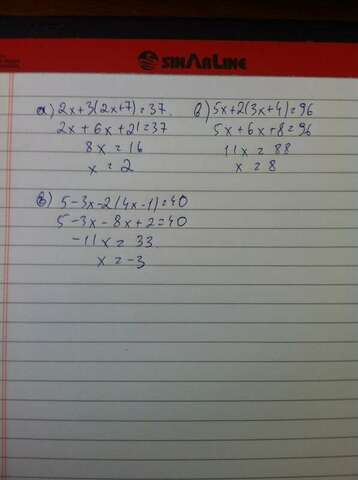 SINARLINE
а) 2x+3(2x+7)=37.
2x+6x+21=37
8x=16
x=2
б) 5x+2(3x+4)=96
5x+6x+8=96
11x=88
x=8
в) 5-3x-2(4x-1)=40
5-3x-8x+2=40
-11x=33.
x=-3